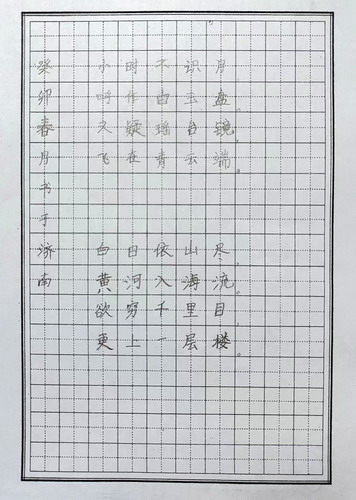 小时不识月
呼作白玉盘。
又疑瑶台镜，
飞在青云端。
白日依山尽，
黄河入海流。
欲穷千里目
更上一层楼。
癸卯春月书于济南